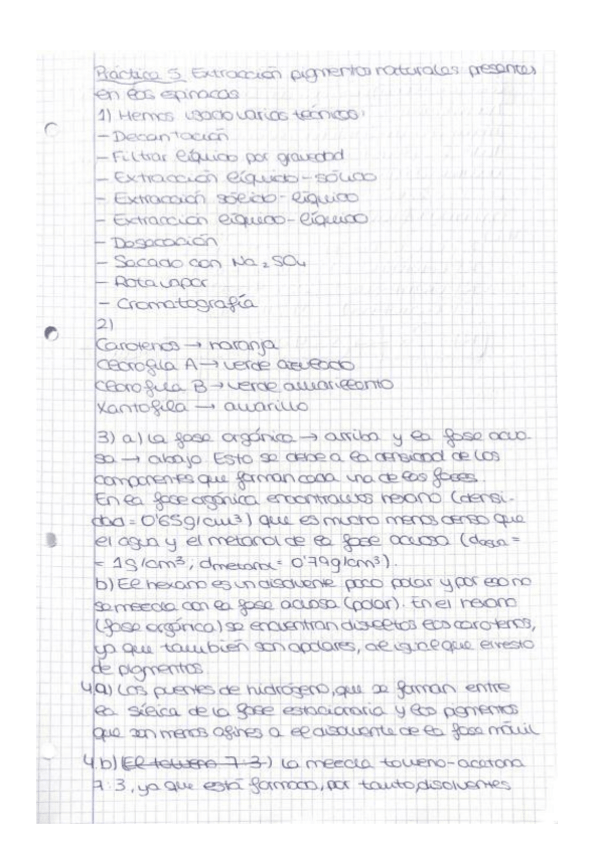 Práctica 5. Extracción pigmentos naturales presentes
en las espinacas
1) Hemos usado varias técnicas:
- Decantación
- Filtrar líquido por gravedad
- Extracción líquido-sólido
- Extracción sólido-líquido
- Extracción líquido-líquido
- Desecación
- Secado con Na₂SO₄
- Rotavapor
- Cromatografía
2)
Carotenos → naranja
Clorofila A → verde azulado
Clorofila B → verde amarillento
Xantofila → amarillo
3) a) La fase orgánica → arriba y la fase acuo-
sa → abajo. Esto se debe a la densidad de los
componentes que forman cada una de las fases.
En la fase orgánica encontramos hexano (densi-
dad = 0'65g/cm³) que es mucho menos denso que
el agua y el metanol de la fase acuosa (dagua =
= 1g/cm³, dmetanol = 0'79g/cm³).
b) El hexano es un disolvente poco polar y por eso no
se mezcla con la fase acuosa (polar). En el hexano
(fase orgánica) se encuentran disueltos los carotenos,
ya que también son apolares, al igual que el resto
de pigmentos
4a) Los puentes de hidrógeno, que se forman entre
la sílica de la fase estacionaria y los pigmentos
que son menos afines a el disolvente de la fase móvil
4.b) El tolueno 7-3) La mezcla tolueno-acetona
7:3, ya que está formado, por tanto, disolventes